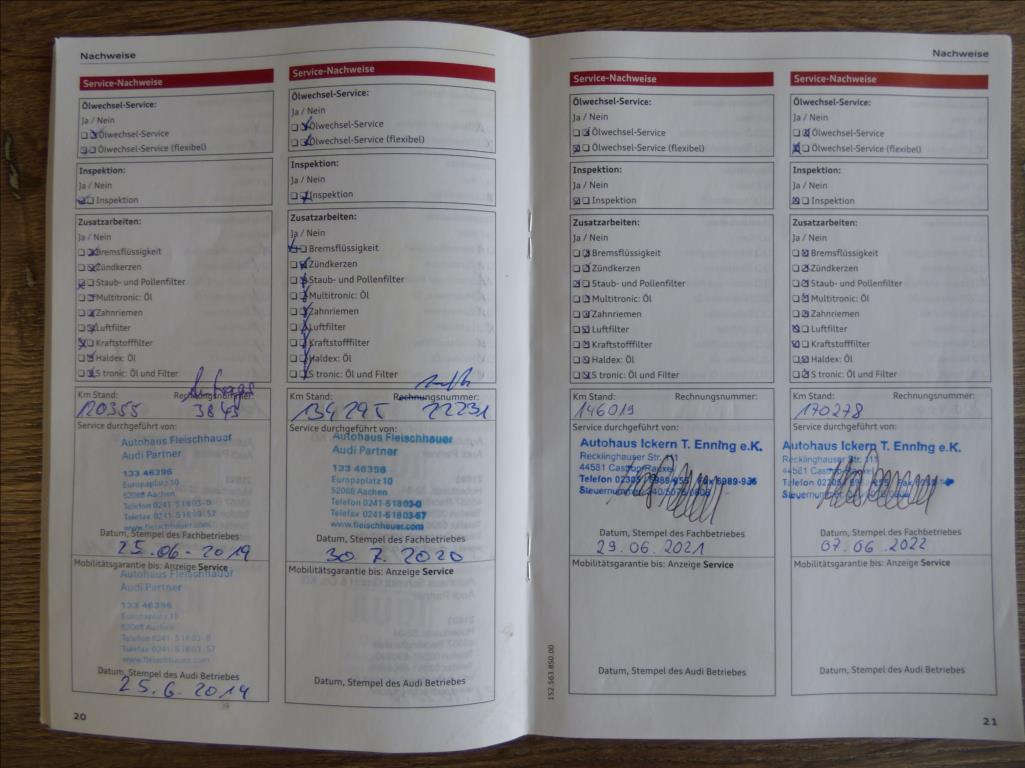 Nachweise
Service-Nachweise
Ölwechsel-Service:
Ja / Nein
Ölwechsel-Service
Ölwechsel-Service (flexibel)
Inspektion:
Ja / Nein
Inspektion
Zusatzarbeiten:
Ja / Nein
Bremsflüssigkeit
Zündkerzen
Staub- und Pollenfilter
Multitronic: Öl
Zahnriemen
Luftfilter
Kraftstofffilter
Haldex: Öl
S tronic: Öl und Filter
Km Stand: Rechnungsnummer:
120355
Service durchgeführt von:
Autohaus Fleischhauer
Audi Partner
133 46396
Europaplatz 10
52068 Aachen
Telefon 0241-51803-0
Telefax 0241-51803-57
www.fleischhauer.com
Datum, Stempel des Fachbetriebes
25.06.2019
Mobilitätsgarantie bis: Anzeige Service
Autohaus Fleischhauer
Audi Partner
133 46396
Europaplatz 10
52068 Aachen
Telefon 0241-51803-0
Telefax 0241-51803-57
www.fleischhauer.com
Datum, Stempel des Audi Betriebes
25.6.2019
20
Service-Nachweise
Ölwechsel-Service:
Ja / Nein
Ölwechsel-Service
Ölwechsel-Service (flexibel)
Inspektion:
Ja / Nein
Inspektion
Zusatzarbeiten:
Ja / Nein
Bremsflüssigkeit
Zündkerzen
Staub- und Pollenfilter
Multitronic: Öl
Zahnriemen
Luftfilter
Kraftstofffilter
Haldex: Öl
S tronic: Öl und Filter
Km Stand: Rechnungsnummer:
22231
Service durchgeführt von:
Autohaus Fleischhauer
Audi Partner
133 46396
Europaplatz 10
52068 Aachen
Telefon 0241-51803-0
Telefax 0241-51803-57
www.fleischhauer.com
Datum, Stempel des Fachbetriebes
30.7.2020
Mobilitätsgarantie bis: Anzeige Service
Datum, Stempel des Audi Betriebes
Nachweise
Service-Nachweise
Ölwechsel-Service:
Ja / Nein
Ölwechsel-Service
Ölwechsel-Service (flexibel)
Inspektion:
Ja / Nein
Inspektion
Zusatzarbeiten:
Ja / Nein
Bremsflüssigkeit
Zündkerzen
Staub- und Pollenfilter
Multitronic: Öl
Zahnriemen
Luftfilter
Kraftstofffilter
Haldex: Öl
S tronic: Öl und Filter
Km Stand: Rechnungsnummer:
146019
Service durchgeführt von:
Autohaus Ickern T. Enning e.K.
Recklinghauser Str. 111
44581 Castrop-Rauxel
Telefon
Steuernummer
Datum, Stempel des Fachbetriebes
29.06.2021
Mobilitätsgarantie bis: Anzeige Service
Datum, Stempel des Audi Betriebes
152.563.850.00
Service-Nachweise
Ölwechsel-Service:
Ja / Nein
Ölwechsel-Service
Ölwechsel-Service (flexibel)
Inspektion:
Ja / Nein
Inspektion
Zusatzarbeiten:
Ja / Nein
Bremsflüssigkeit
Zündkerzen
Staub- und Pollenfilter
Multitronic: Öl
Zahnriemen
Luftfilter
Kraftstofffilter
Haldex: Öl
S tronic: Öl und Filter
Km Stand: Rechnungsnummer:
170278
Service durchgeführt von:
Autohaus Ickern T. Enning e.K.
Recklinghauser Str. 111
44581
Telefon
Steuernummer
Datum, Stempel des Fachbetriebes
07.06.2022
Mobilitätsgarantie bis: Anzeige Service
Datum, Stempel des Audi Betriebes
21